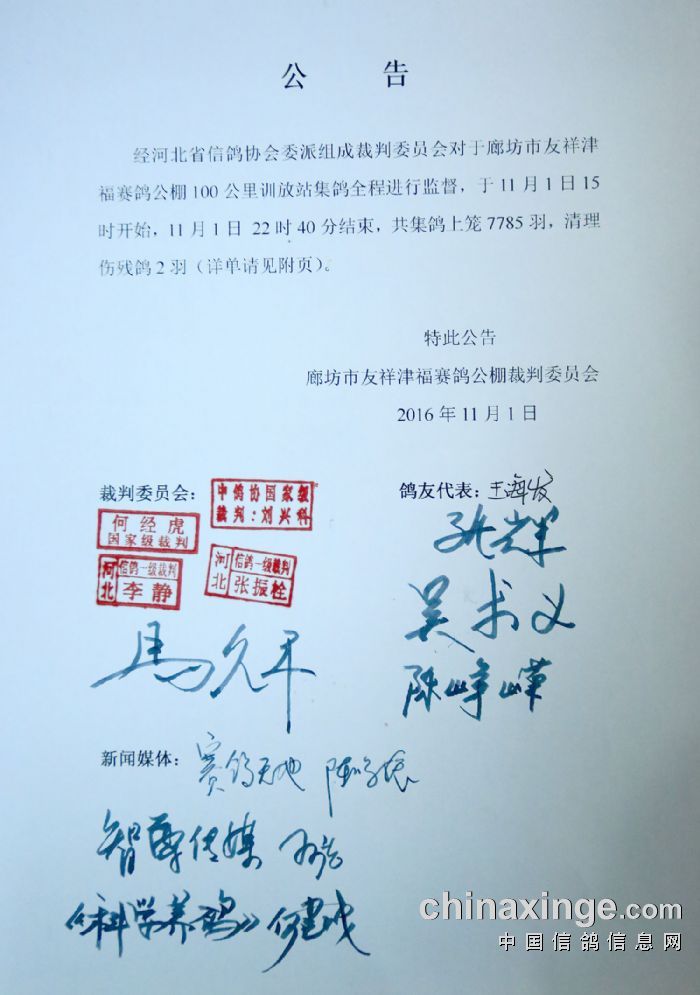 公 告
经河北省信鸽协会委派组成裁判委员会对于廊坊市友祥津
福赛鸽公棚100公里训放站集鸽全程进行监督，于11月1日15
时开始，11月1日 22时40分结束，共集鸽上笼7785羽，清理
伤残鸽2羽（详单请见附页）。
特此公告
廊坊市友祥津福赛鸽公棚裁判委员会
2016年11月1日
裁判委员会：
中鸽协国家级
裁判：刘兴科
何经虎
国家级裁判
河北
信鸽一级裁判
李静
河北
信鸽一级裁判
张振栓
鸽友代表：王海发
吴术义
陈峥嵘
新闻媒体：赛鸽天地
智尊传媒
《科学养鸽》何建成
chinaxinge.com
中国信鸽信息网